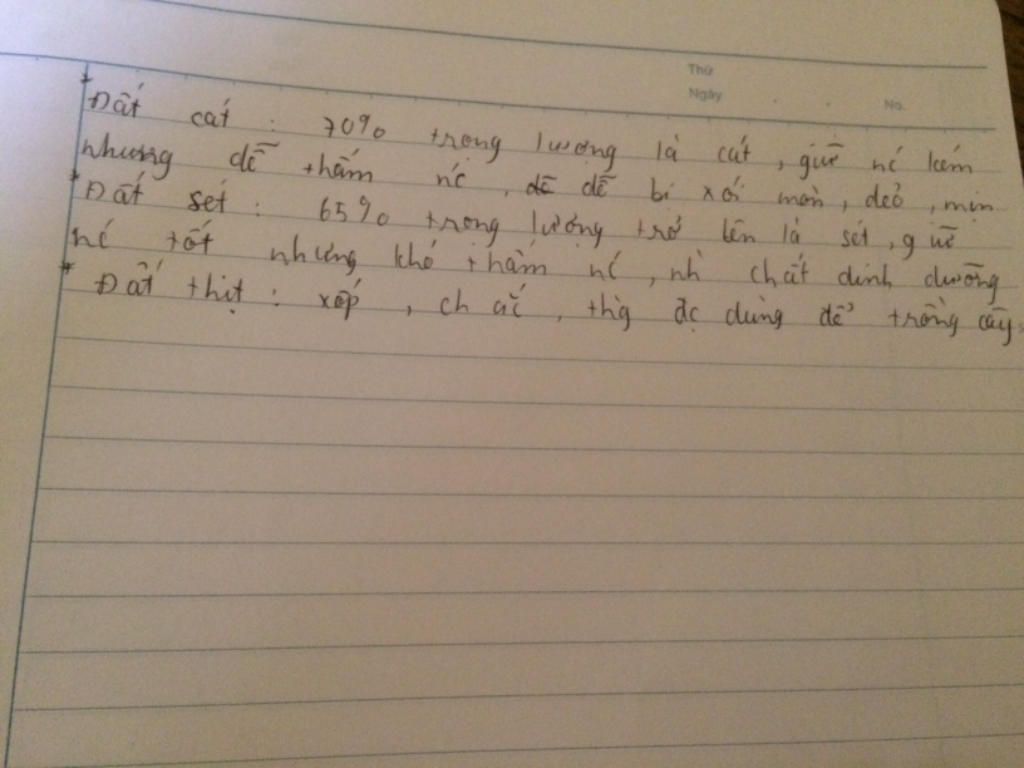 Thứ
Ngày
No.
* Đất cát : 70% trong lượng là cát , giữ nć kém
nhưng dễ thấm nć , dễ dễ bị xói mòn , dẻo , mịn
* Đất sét : 65% trong lượng trở lên là sét , giữ
nć tốt nhưng khó thấm nć , nh` chất dinh dưỡng
* Đất thịt : xốp , chắc , thg đc dùng để trồng cây.